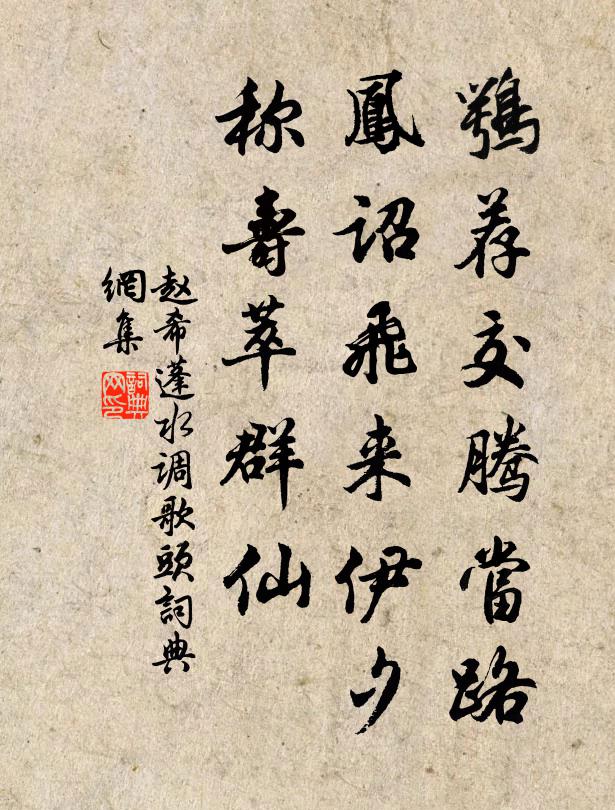 鶚荐交腾當路
鳳詔飛来伊夕
称壽萃群仙
赵希蓬水调歌頭詞典
網集
詞典
网印